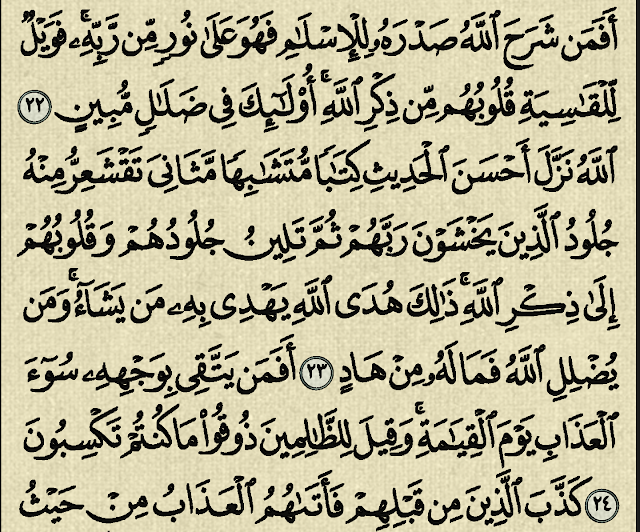 أَفَمَن شَرَحَ ٱللَّهُ صَدْرَهُۥ لِلْإِسْلَٰمِ فَهُوَ عَلَىٰ نُورٍ مِّن رَّبِّهِۦ ۚ فَوَيْلٌ
لِّلْقَٰسِيَةِ قُلُوبُهُم مِّن ذِكْرِ ٱللَّهِ ۚ أُو۟لَٰٓئِكَ فِى ضَلَٰلٍ مُّبِينٍ ٢٢
ٱللَّهُ نَزَّلَ أَحْسَنَ ٱلْحَدِيثِ كِتَٰبًا مُّتَشَٰبِهًا مَّثَانِىَ تَقْشَعِرُّ مِنْهُ
جُلُودُ ٱلَّذِينَ يَخْشَوْنَ رَبَّهُمْ ثُمَّ تَلِينُ جُلُودُهُمْ وَقُلُوبُهُمْ
إِلَىٰ ذِكْرِ ٱللَّهِ ۚ ذَٰلِكَ هُدَى ٱللَّهِ يَهْدِى بِهِۦ مَن يَشَآءُ ۚ وَمَن
يُضْلِلِ ٱللَّهُ فَمَا لَهُۥ مِنْ هَادٍ ٢٣ أَفَمَن يَتَّقِى بِوَجْهِهِۦ سُوٓءَ
ٱلْعَذَابِ يَوْمَ ٱلْقِيَٰمَةِ ۚ وَقِيلَ لِلظَّٰلِمِينَ ذُوقُوا۟ مَا كُنتُمْ تَكْسِبُونَ
٢٤ كَذَّبَ ٱلَّذِينَ مِن قَبْلِهِمْ فَأَتَىٰهُمُ ٱلْعَذَابُ مِنْ حَيْثُ